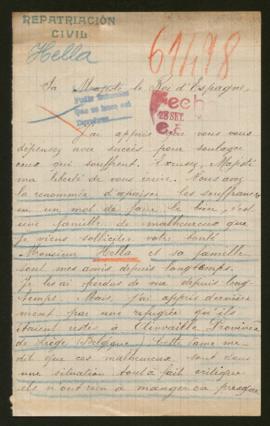 REPATRIACIÓN
CIVIL
Hella
61498
Sa Majesté le Roi d'Espagne,
Fech
23 SET.
J'ai appris que vous vous
dépensez avec succès pour soulager
ceux qui souffrent. Excusez, Majesté
ma liberté de vous écrire. Vous avez
la renommée d'apaiser les souffrances
en un mot de faire le bien, c'est
une famille de malheureux que
je viens solliciter votre bonté.
Monsieur Hella et sa famille
sont mes amis depuis longtemps.
Je les ai perdus de vue depuis long
temps. Mais, j'ai appris dernière
ment par une refugiée qu'ils
étaient resté à Province
de Liège (Belgique) Cette dame me
dit que ces malheureux sont dans
une situation tout à fait critique
ils n'ont rien à manger ou presque